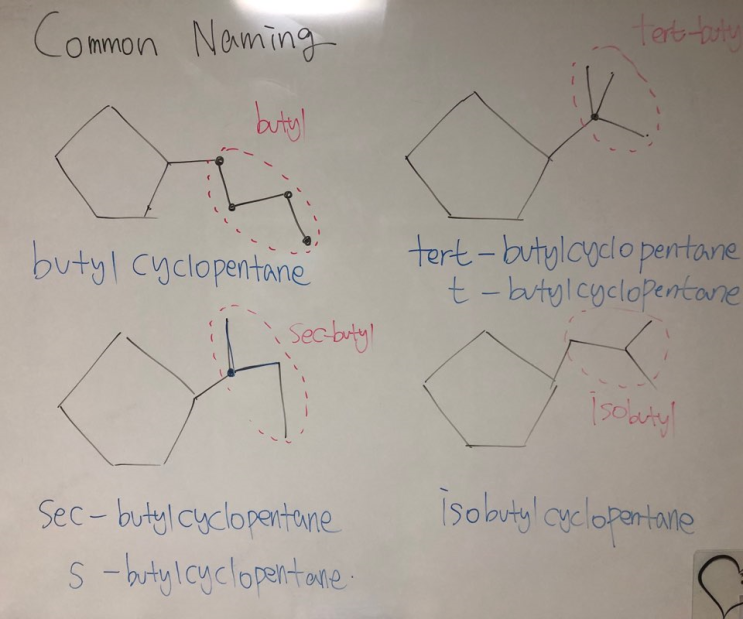 Common Naming
butyl
tert-buty
butyl cyclopentane
tert-butylcyclopentane
t-butylcyclopentane
sec-butyl
isobutyl
sec-butylcyclopentane
s-butylcyclopentane.
isobutylcyclopentane